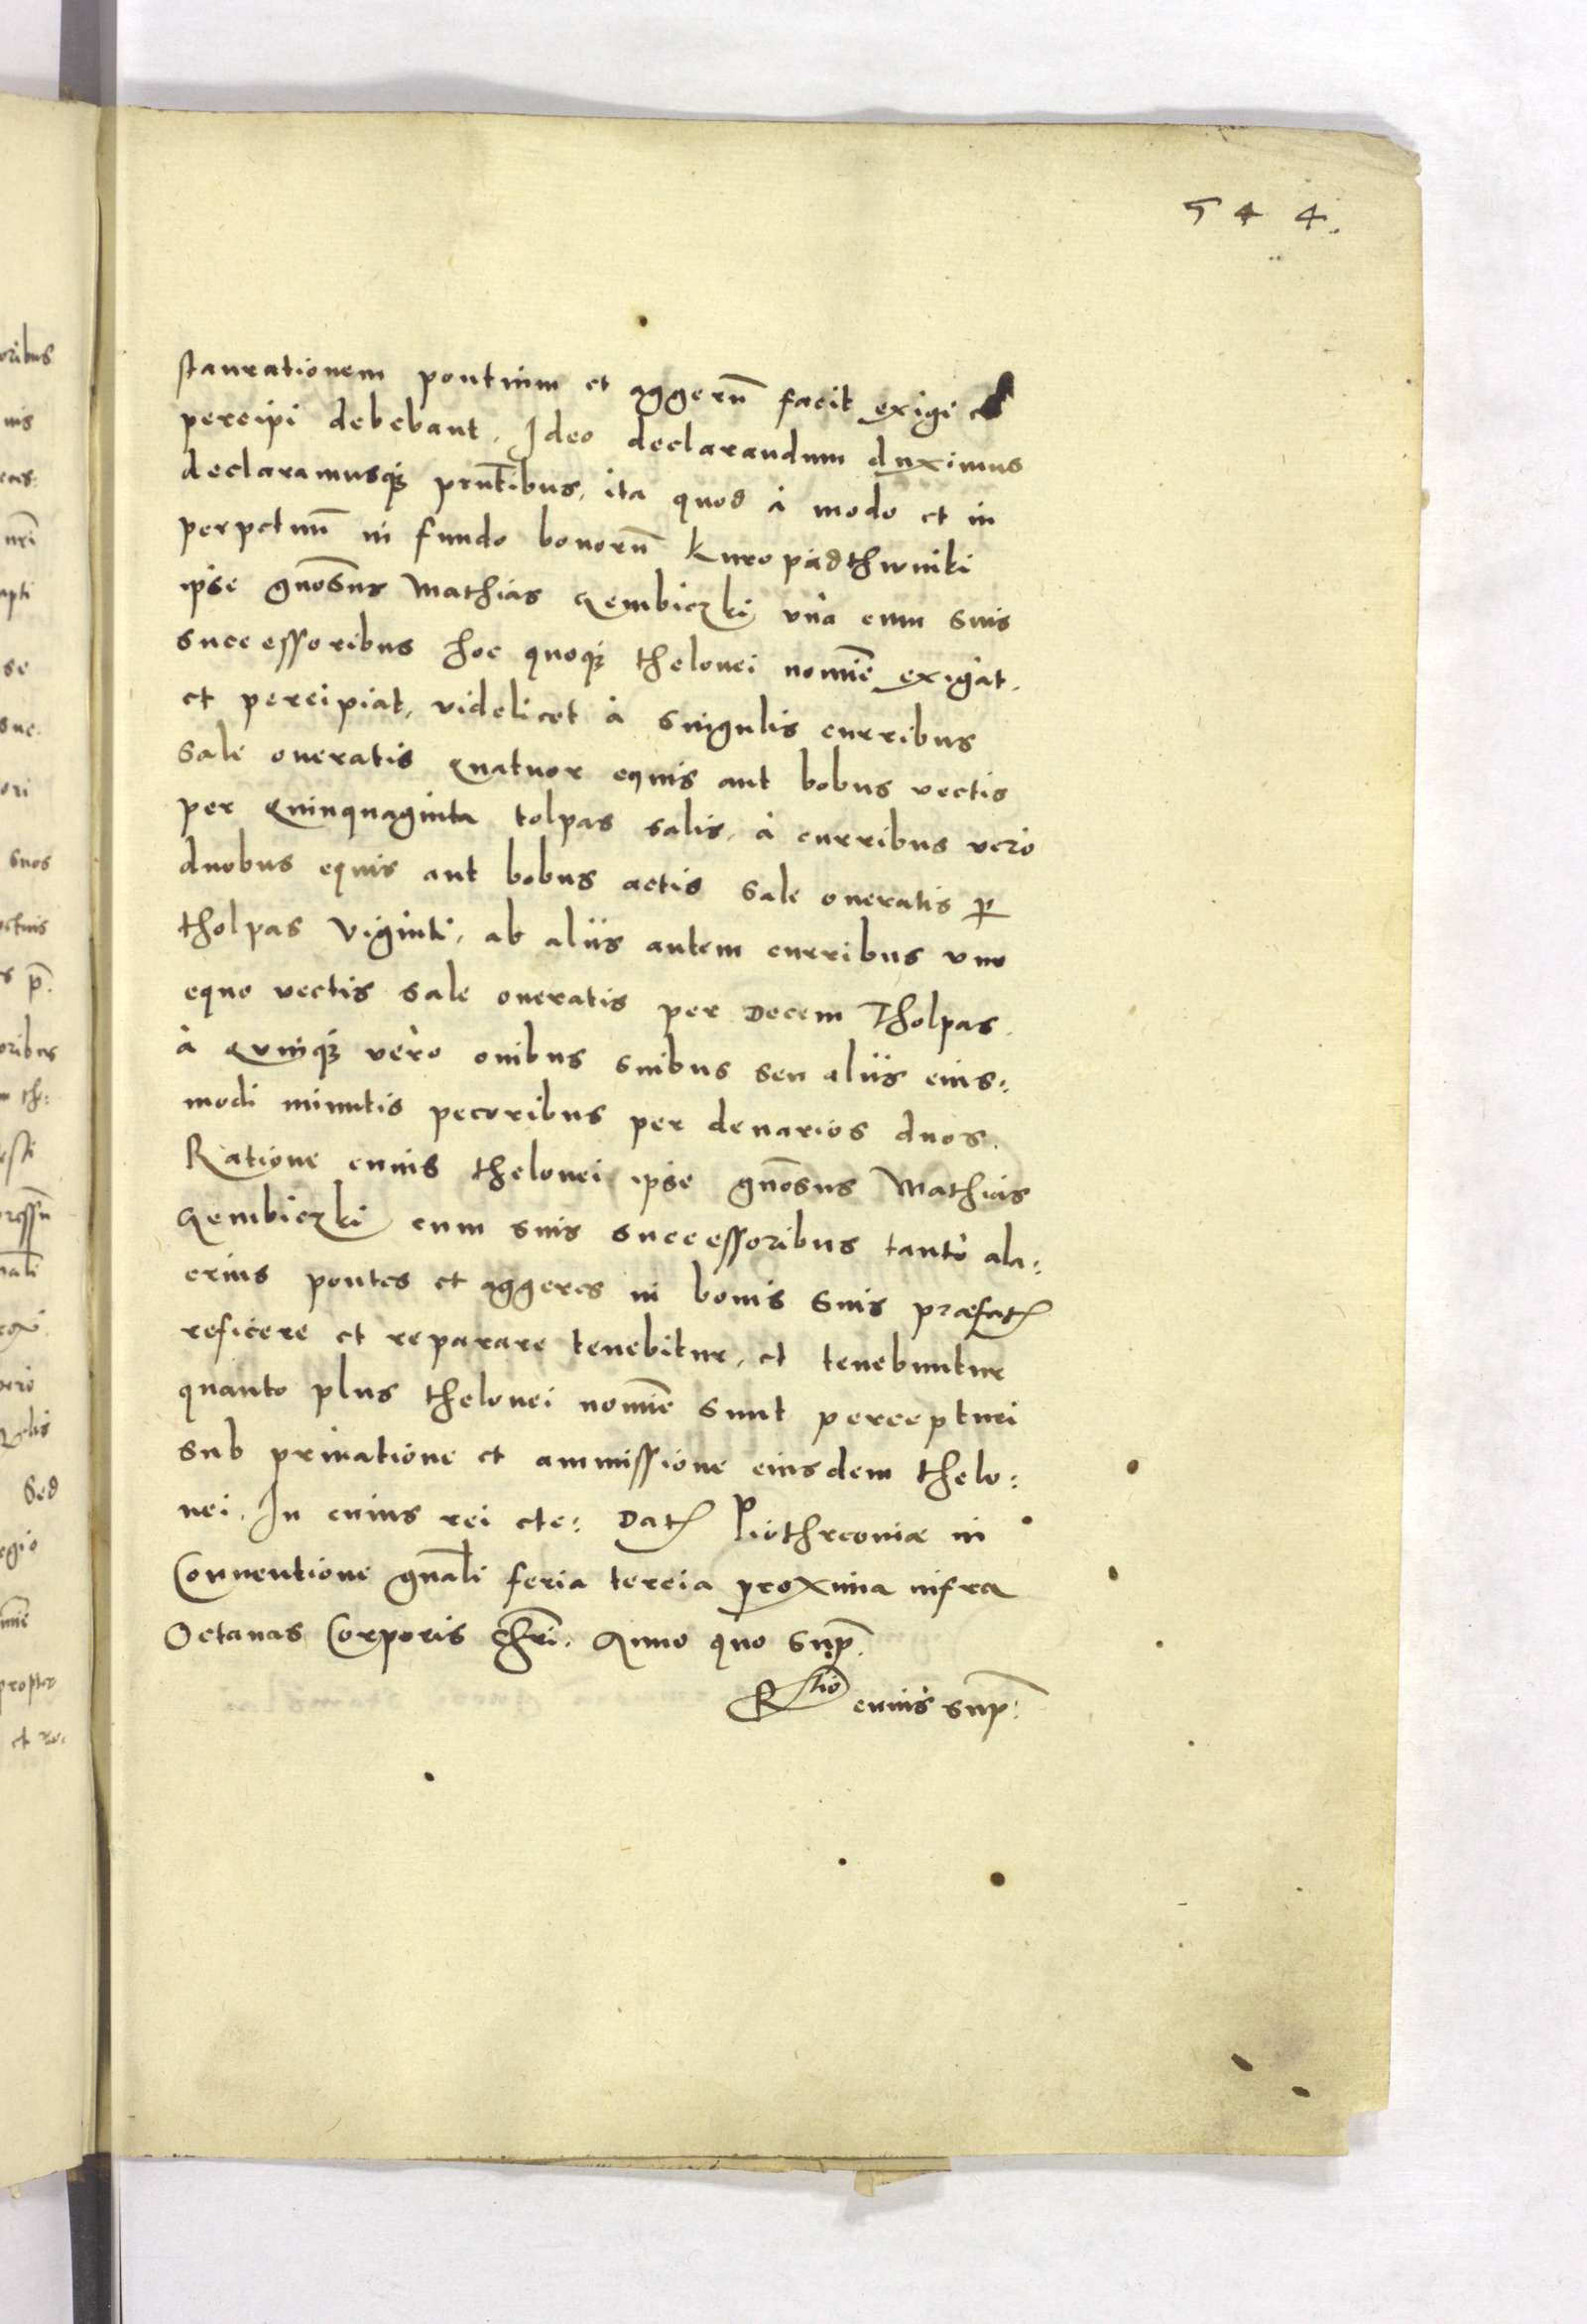 544.
staurationem pontium et aggerū facit exigi et
percipi debebant. Ideo declarandum duximus
declaramusq₃ pr̄ntibus, ita quod à modo et in
perpetuū in fundo bonorū Kuropadthwniki
ipse gnōsus Mathias Zembiczki vnà cum suis
successoribus hoc quoq₃ thelonei nomīe exigat.
et percipiat, videlicet à singulis curribus
sale oneratis Quatuor equis aut bobus vectis
per Quinquaginta tolpas salis, à curribus verò
duobus equis aut bobus actis sale oneratis ꝑ
tholpas Viginti, ab aliis autem curribus vno
equo vectis sale oneratis per Decem Tholpas.
à Quinq₃ verò ouibus suibus seu aliis eius:
modi minutis pecoribus per denarios duos.
Ratione cuius thelonei ipse gnōsus Mathias
Zembiczki cum suis successoribus tantò ala:
crius pontes et aggeres in bonis suis præfat
reficere et reparare tenebitur, et tenebuntur
quanto plus thelonei nomīe sunt percepturi
sub priuatione et ammissione eiusdem thelo:
nei. In cuius rei etc: Dat Piothrcouiæ in
Conuentione gnāli feria tercia proxima infra
Octauas Corporis Chrī. Anno quo sup̄.
R̄tio cuius sup̄: